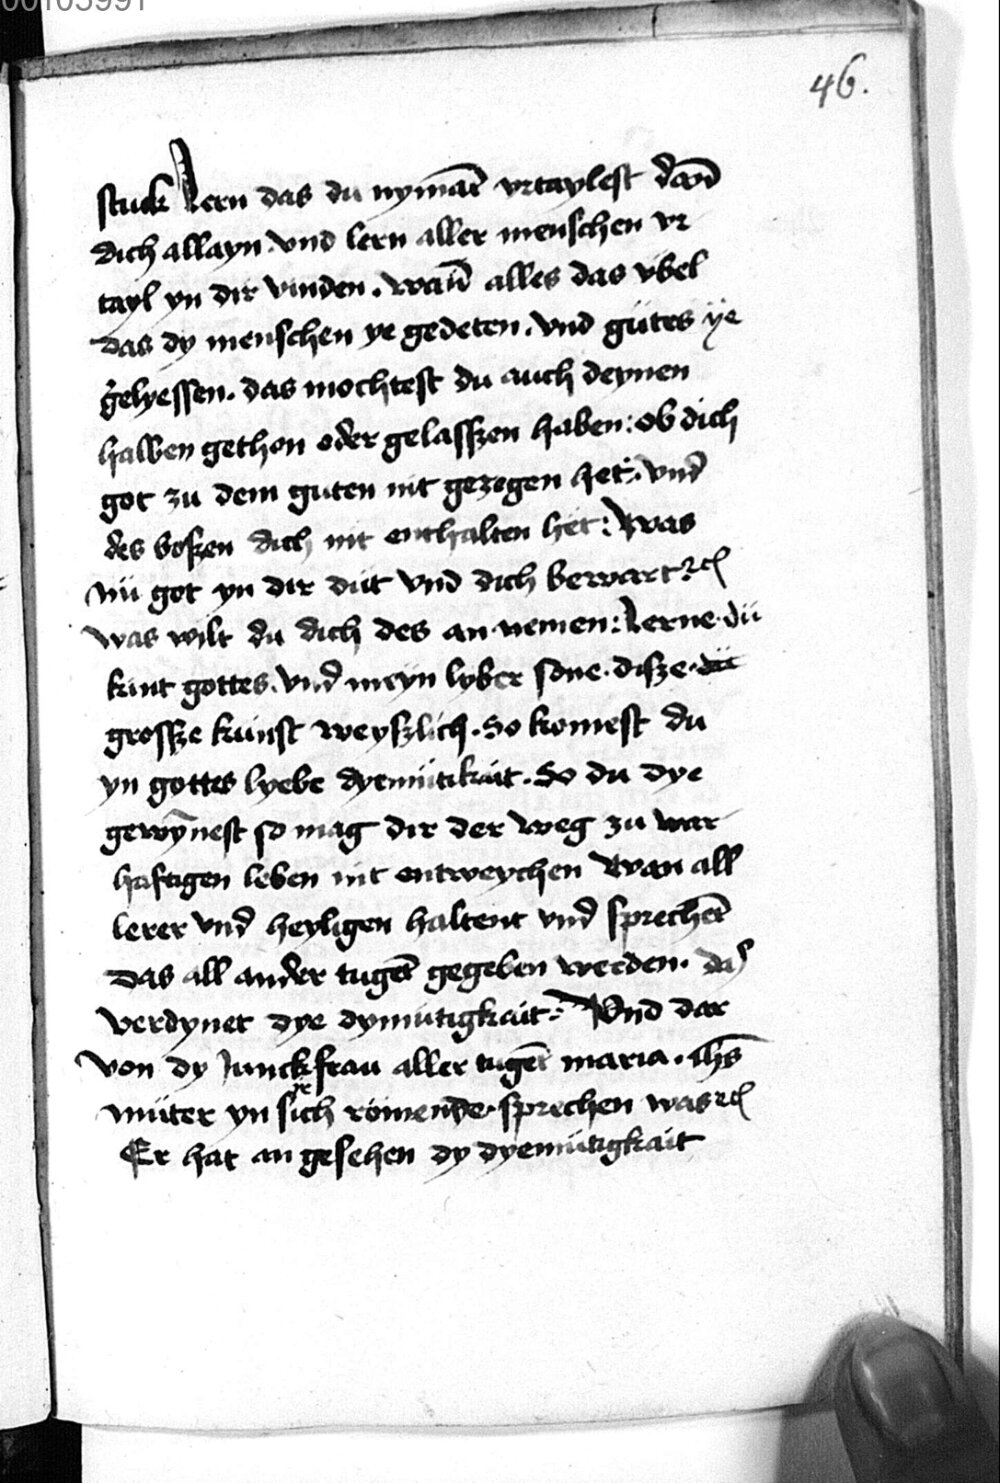 00105991
46.
stuck Lern das du nymāt vrtaylest dān
dich allayn vnd lern aller menschen vr
tayl yn dir vinden. wañ alles das vbel
das dy menschen ye gedeten. vnd gütes ÿe
gelyessen. das mochtest du auch deynen
halben gethon oder gelasszen haben: ob dich
got zu dem guten nit gezogen het: vnd
des boszen dich nit enthalten het: Was
nü got yn dir düt vnd dich bewart ꝛc
was wilt du dich des an nemen: Lerne dü
kint gottes. vnd meyn lyber sone. disze
grossze kunst weyszlich. So komest du
yn gottes lyebe dyemütikait. So du dye
gewȳnest so mag dir der weg zu war
haftigen leben nit entweychen Wan all
lerer vnd heyligen haltent vnd sprechēt
das all ander tugēt gegeben werden. das
verdynet dye dymütigkait: Vnd dar
von dy Junckfrau aller tugēt maria. ihs̄
müter yn sich römende sprechen was ꝛc
Er hat an gesehen dy dyemütigkait